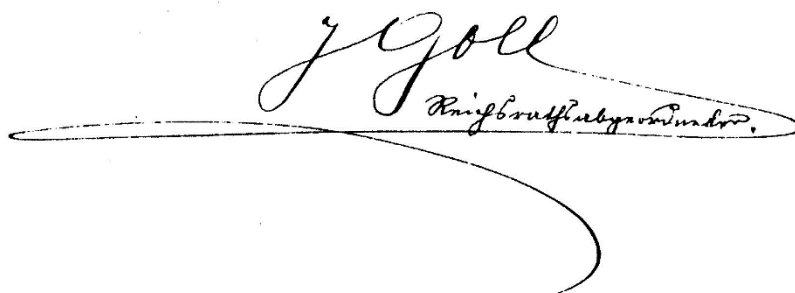 J Goll
Reichsrathsabgeordneter.